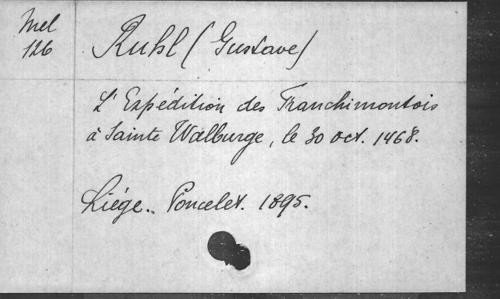 Mel
126
Ruhl (Gustave)
L'Expédition des Franchimontois
à Sainte Walburge, le 30 oct. 1468.
Liége.. Poncelet. 1895.